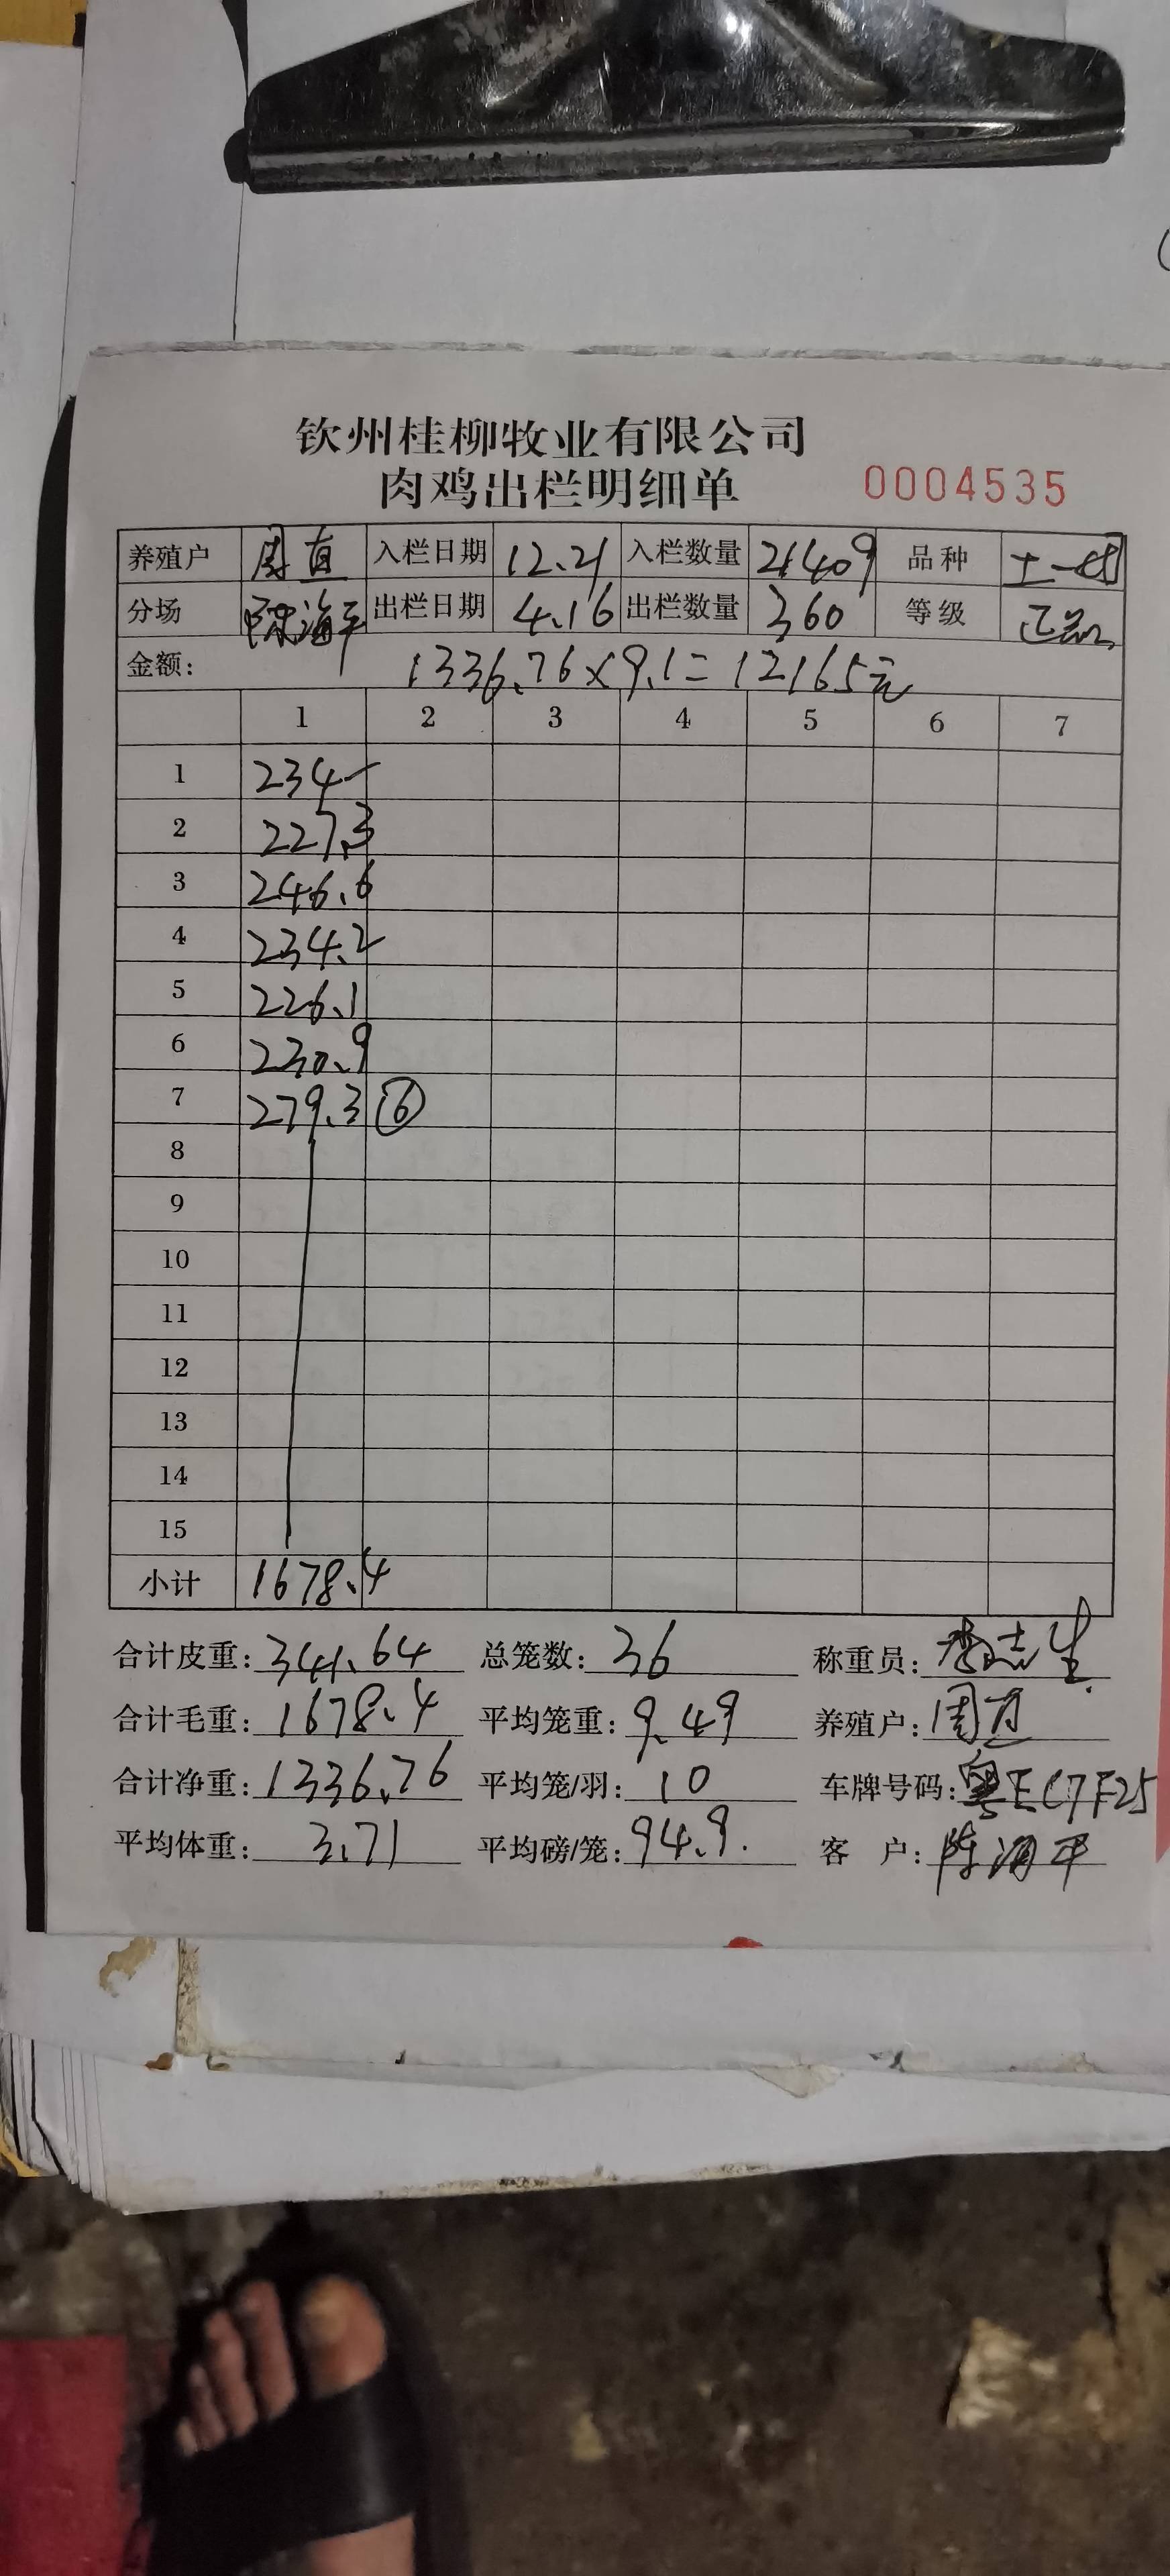 钦州桂柳牧业有限公司
肉鸡出栏明细单 0004535
养殖户 周直 入栏日期 12.21 入栏数量 21409 品种 土一
分场 陈海平 出栏日期 4.16 出栏数量 360 等级 正品
金额: 1336.76×9.1=12165元
1 2 3 4 5 6 7
1 234-
2 227.3
3 246.6
4 234.2
5 226.1
6 230.9
7 279.3 ⑥
8
9
10
11
12
13
14
15
小计 1678.4
合计皮重: 341.64 总笼数: 36 称重员: 李志生
合计毛重: 1678.4 平均笼重: 9.49 养殖户: 周直
合计净重: 1336.76 平均笼/羽: 10 车牌号码: 粤EC7F25
平均体重: 3.71 平均磅/笼: 94.9. 客 户: 陈海平